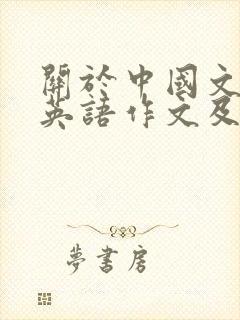 關於中國文
英語作文及
夢書房